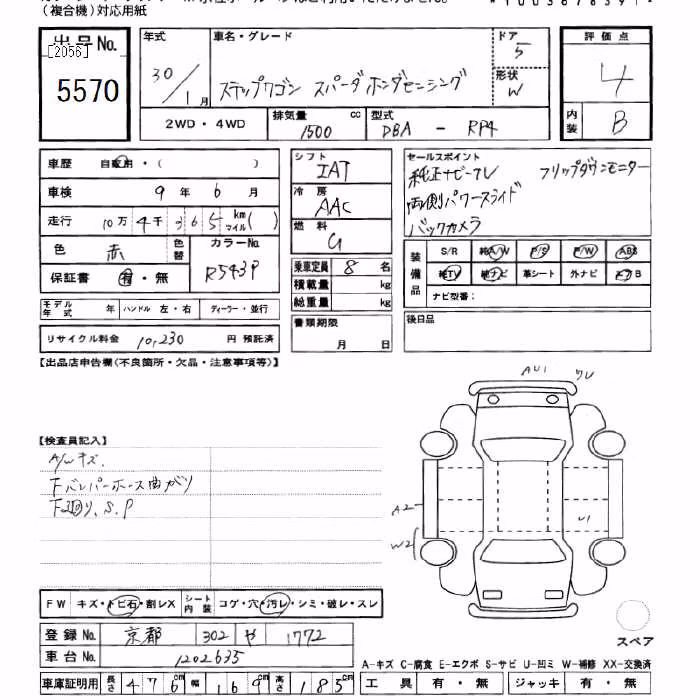 (複合機)対応用紙
出品No.
[2056]
5570
年式
30/1月
車名・グレード
ステップワゴン スパーダホンダセンシング
ドア
5
形状
W
評価点
4
内装
B
2WD・4WD
排気量
1500 cc
型式
DBA - RP4
車歴 自家用・( )
車検 9年 6月
走行 10万 4千 3 6 5 km マイル( )
色 赤 色替
カラーNo.
R543P
保証書 有・無
シフト
IAT
冷房
AAC
燃料
G
乗車定員 8 名
積載量 kg
総重量 kg
セールスポイント
純正ナビーTV フリップダウンモニター
両側パワースライド
バックカメラ
装備品
S/R 純A/W P/S P/W ABS
純TV 純ナビ 革シート 外ナビ エアB
ナビ型番:
モデル年式 年 ハンドル 左・右 ディーラー・並行
リサイクル料金 10,230 円 預託済
書類期限
月 日
後日品
【出品店申告欄(不良箇所・欠品・注意事項等)】
【検査員記入】
A/Wキズ.
Fバンパーホース曲がり
F廻り、S.P
AU1
A2
W2
U1
FW キズ・トビ石・割レX
シート内装 コゲ・穴・汚レ・シミ・破レ・スレ
登録No. 京都 302 や 1772
車台No. 1202635
車庫証明用 長さ 476cm 幅 169cm 高さ 185cm
スペア
A-キズ C-腐食 E-エクボ S-サビ U-凹ミ W-補修 XX-交換済
工具 有・無 ジャッキ 有・無